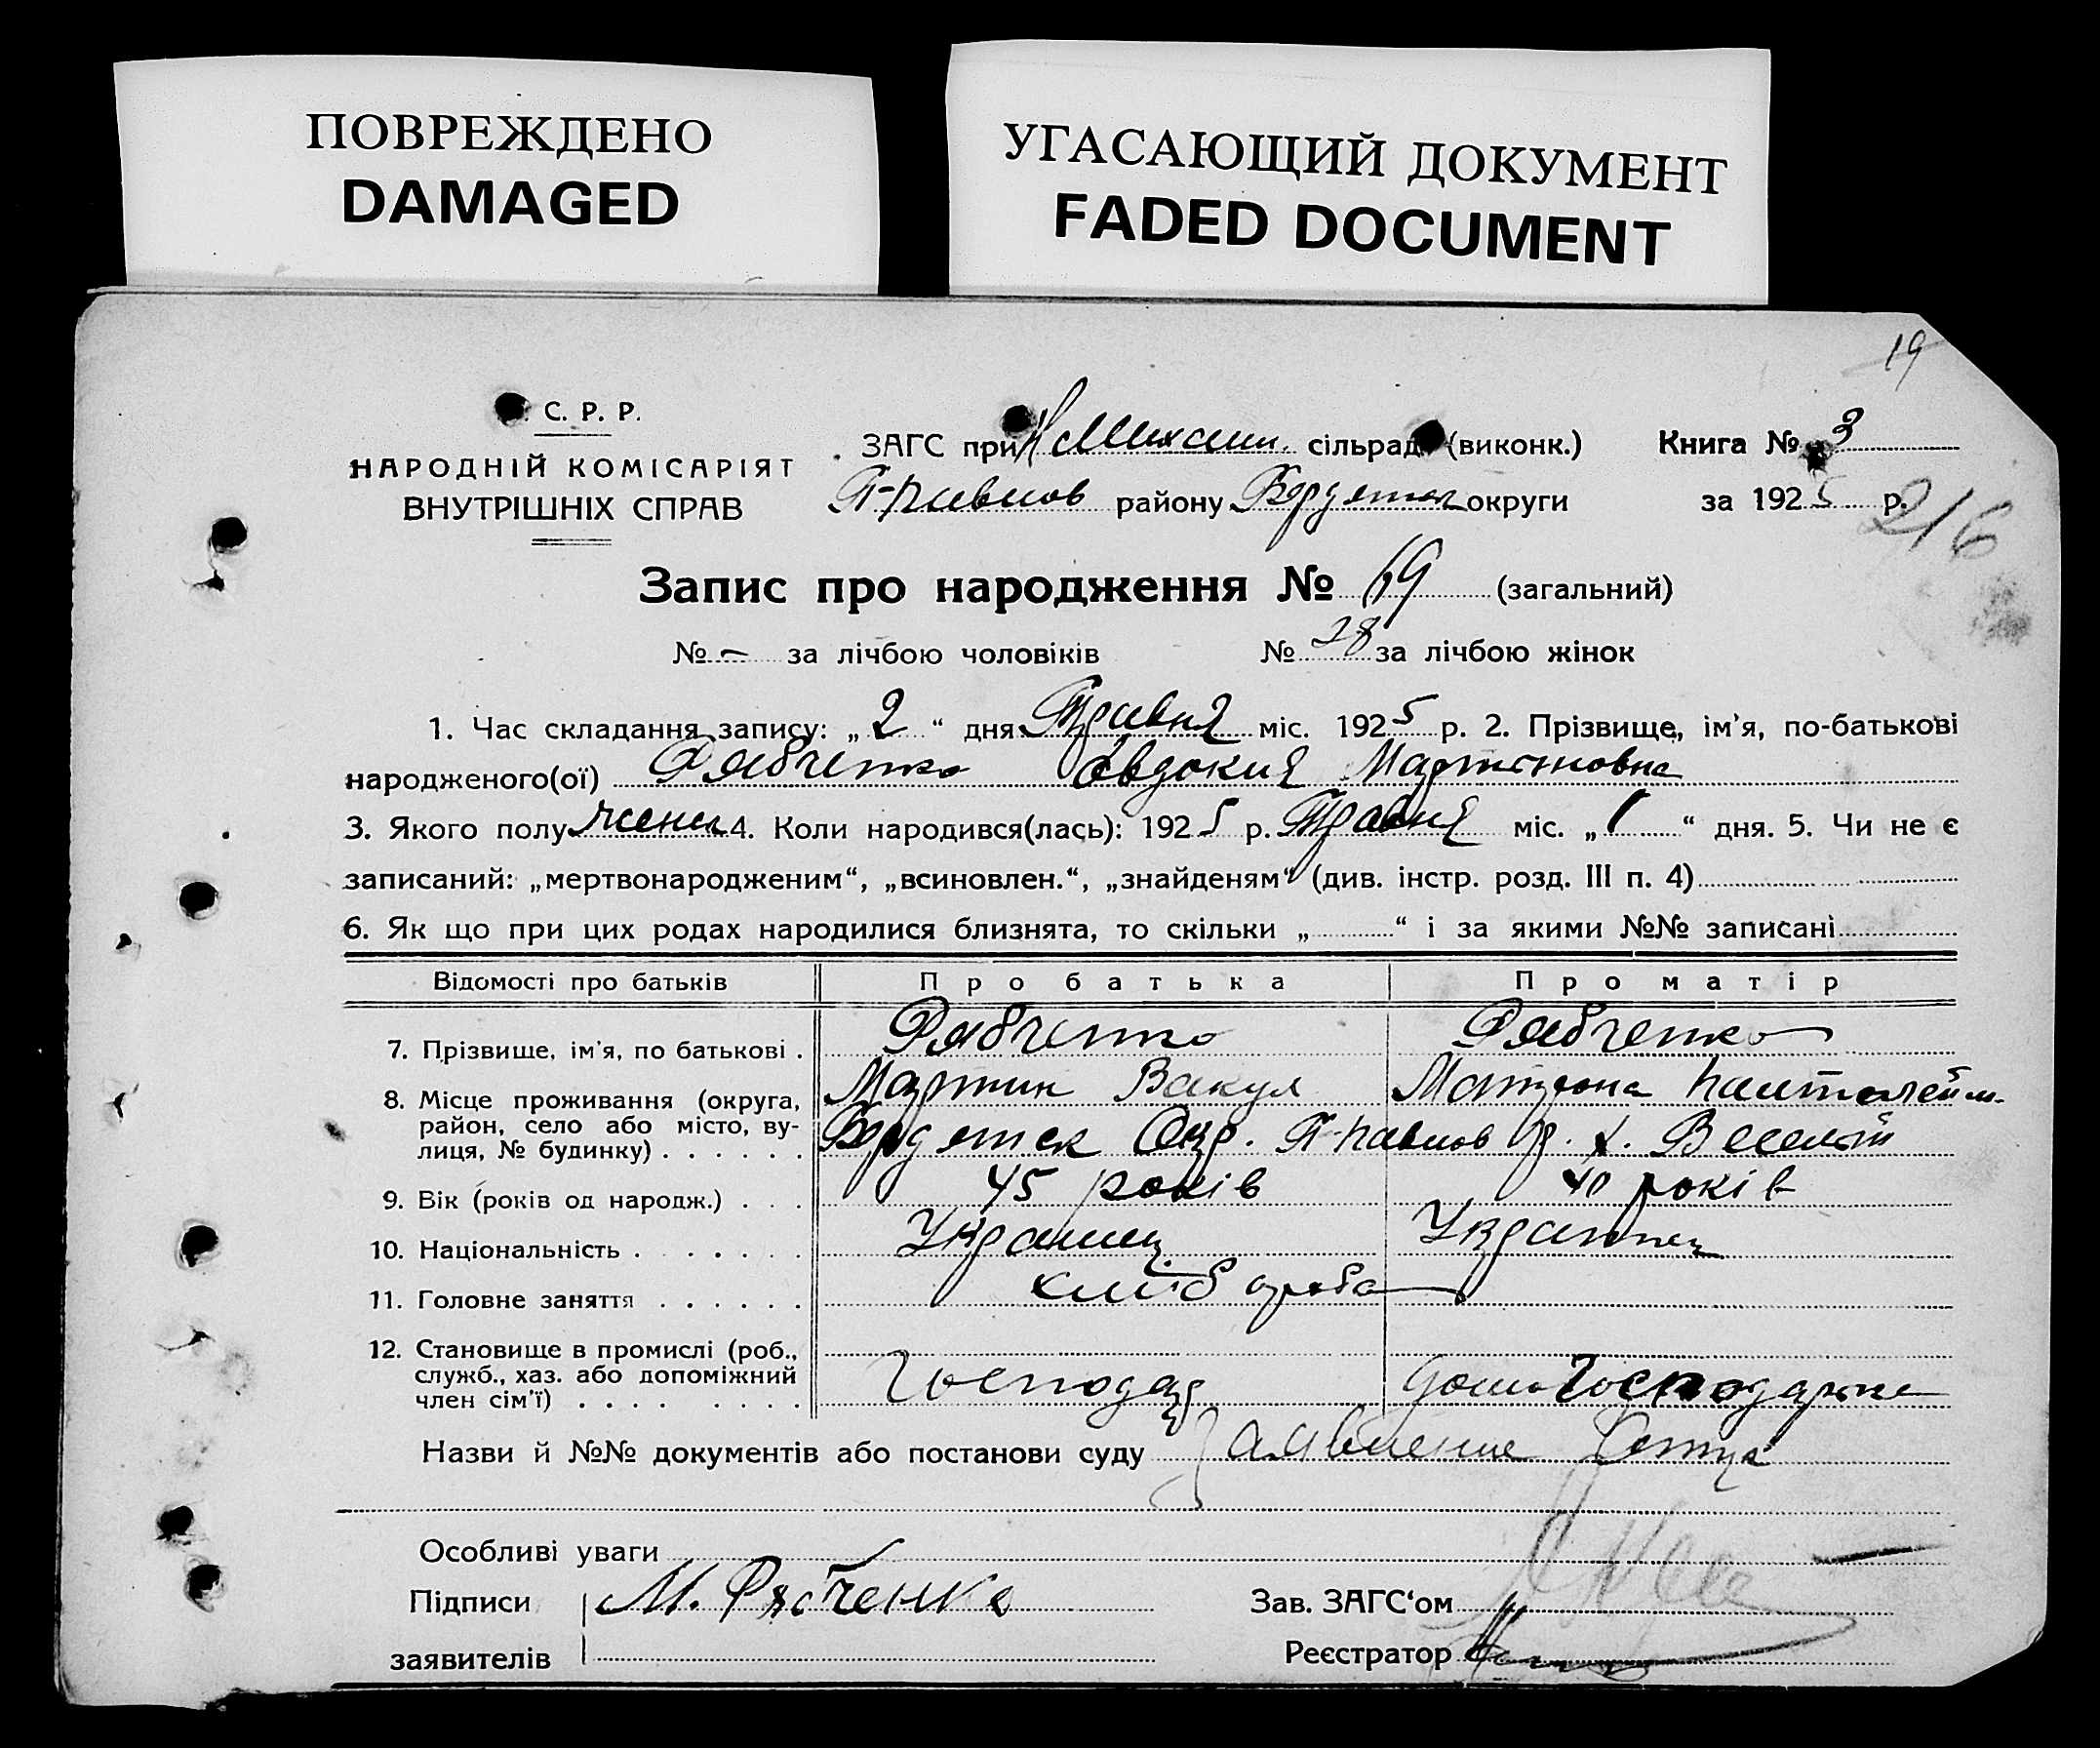 ПОВРЕЖДЕНО
DAMAGED
УГАСАЮЩИЙ ДОКУМЕНТ
FADED DOCUMENT
19
С. Р. Р.
НАРОДНІЙ КОМІСАРІЯТ
ВНУТРІШНІХ СПРАВ
ЗАГС при сільрад (виконк.)
району округи
Книга № 3
за 1925 р.
216
Запис про народження № 69 (загальний)
№ - за лічбою чоловіків № 28 за лічбою жінок
1. Час складання запису: „2“ дня Травня міс. 1925 р. 2. Прізвище, ім'я, по-батькові
народженого(ої) Рябченко Євдокия Мартиновна
3. Якого полу жіноч 4. Коли народився(лась): 1925 р. Травня міс. „1“ дня. 5. Чи не є
записаний: „мертвонародженим“, „всиновлен.“, „знайденям“ (див. інстр. розд. III п. 4)
6. Як що при цих родах народилися близнята, то скільки „ “ і за якими №№ записані
Відомості про батьків Про батька Про матір
7. Прізвище, ім'я, по батькові . Рябченко Рябченко
Мартин Вакул Матрона Пантелейм.
8. Місце проживання (округа,
район, село або місто, ву-
лиця, № будинку) . . . . . . Бердянск Окр. П-Павлов р. х. Веселий
9. Вік (років од народж.) . . . 45 років 40 років
10. Національність . . . . . . Українец Українец
11. Головне заняття . . . . . . хлібороб
12. Становище в промислі (роб.,
служб., хаз. або допоміжний
член сім'ї) . . . . . . . . Господар домогосподарка
Назви й №№ документів або постанови суду Заявление Отца
Особливі уваги
Підписи М. Рябченко
заявителів
Зав. ЗАГС'ом
Реєстратор